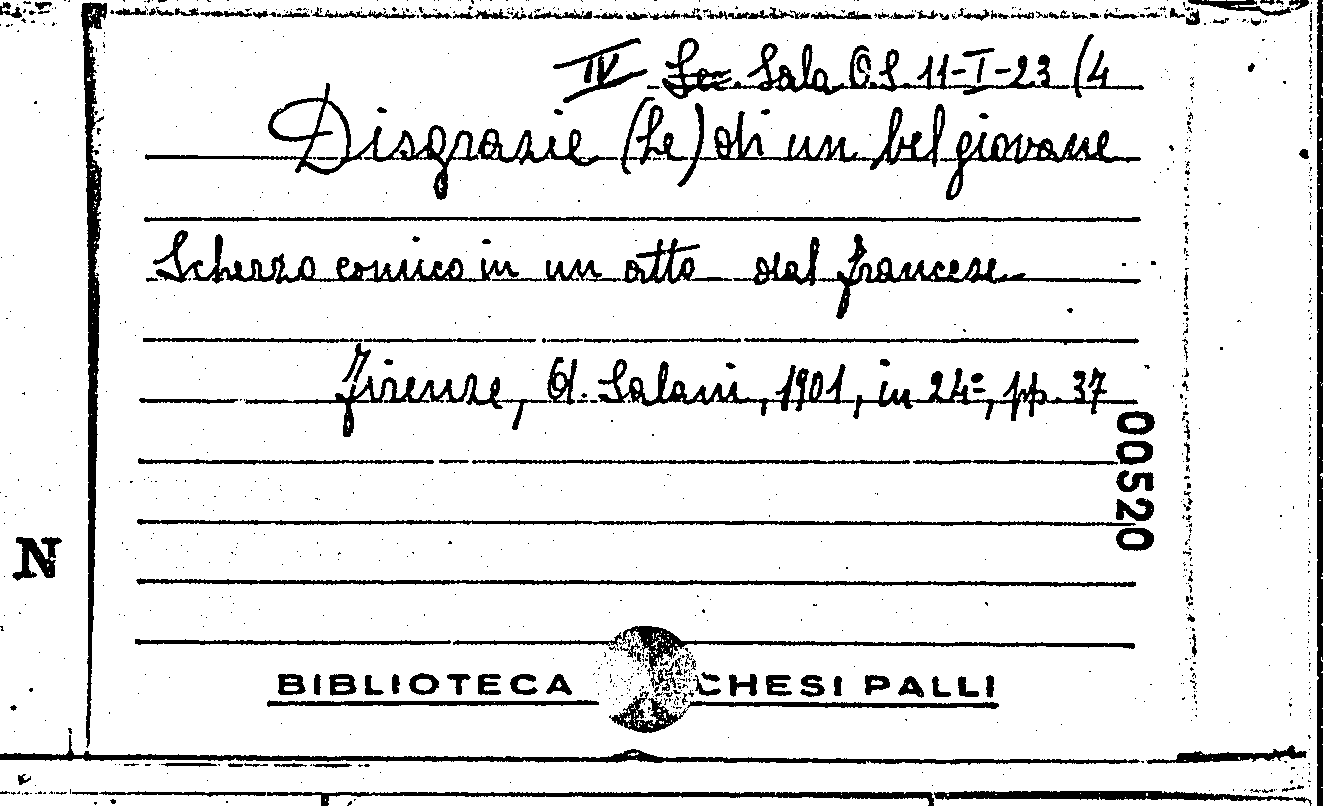 IV Sala O.S. 11-I-23 (4
Disgrazie (Le) di un bel giovane
Scherzo comico in un atto dal francese
Firenze, A. Salani, 1901, in 24º, pp. 37
00520
N
BIBLIOTECA CHESI PALLI